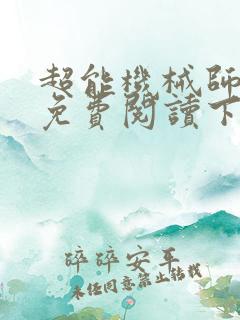 超能機械師
免費閱讀下
碎碎安平
未经同意禁止转载